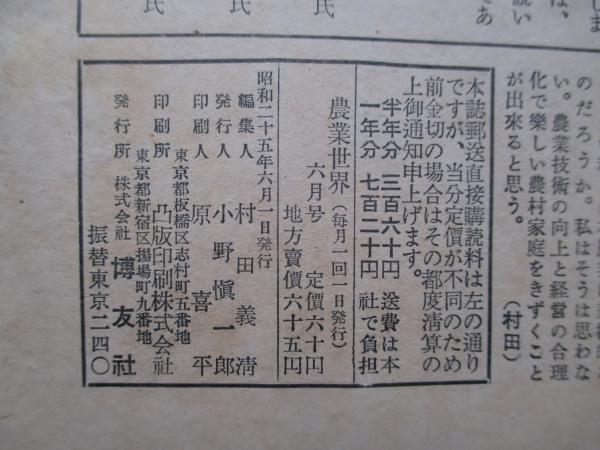 しま
は、
続い
であ
氏
氏
氏
のだろうか。私はそうは思わな
い。農業技術の向上と経営の合理
化で樂しい農村家庭をきずくこと
が出來ると思う。
（村田）
本誌郵送直接購読料は左の通り
ですが、当分定價が不同のため
前金切の場合はその都度清算の
上御通知申上げます。
半年分 三百六十円 送費は本
一年分 七百二十円 社で負担
農業世界（毎月一回一日発行）
六月号 定價六十円
地方賣價六十五円
昭和二十五年六月一日発行
編集人 村田義清
発行人 小野愼一郎
印刷人 原喜平
東京都板橋区志村町五番地
印刷所 凸版印刷株式会社
東京都新宿区揚場町九番地
発行所 株式会社 博友社
振替東京二四〇